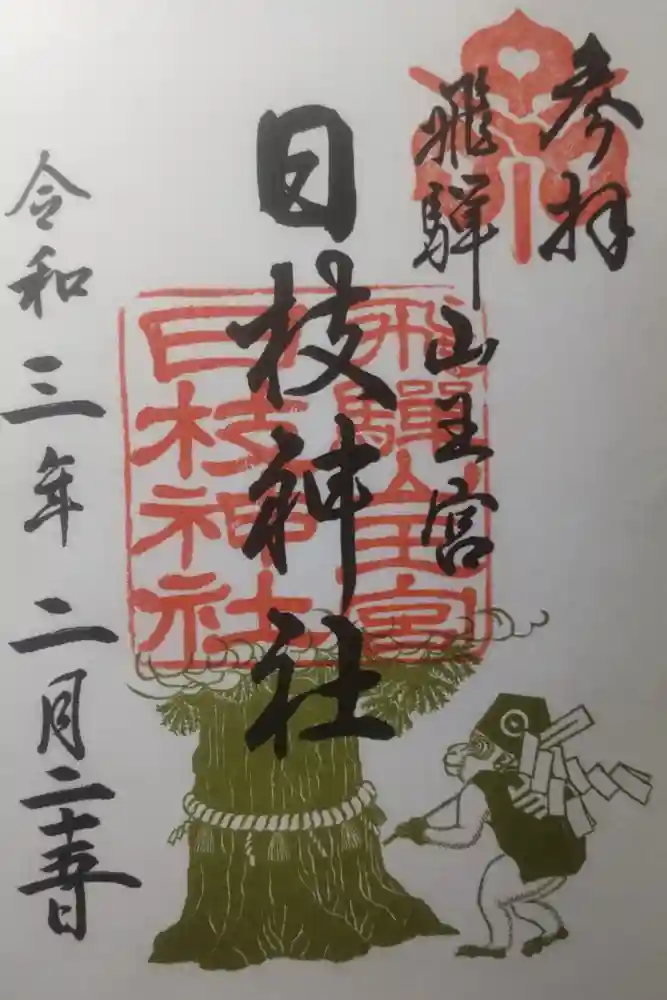 参拝
飛騨山王宮
日枝神社
飛驒山王宮
日枝神社
令和三年二月二十五日